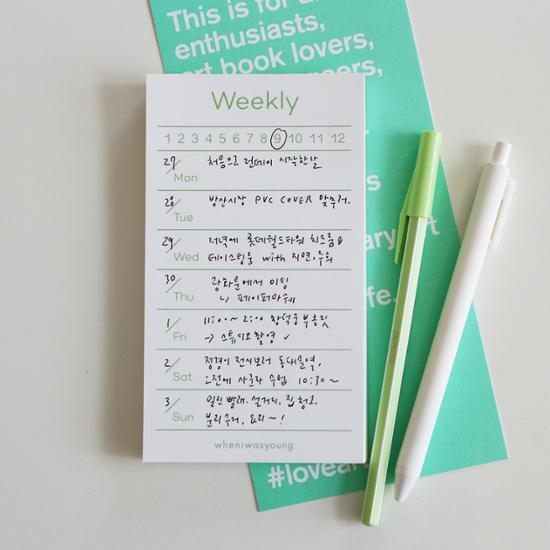 This is for a
enthusiasts,
art book lovers,
Weekly
1 2 3 4 5 6 7 8 9 10 11 12
27 Mon 처음으로 런데이 시작한 날
28 Tue 방산시장 PVC COVER 맞추러.
29 Wed 저녁에 롯데월드타워 치즈룸
테이스팅룸 with 지연,
30 Thu 광화문에서 미팅
↳ 페이퍼마쉐
1 Fri 11:00~ 2:00
→ 스튜디오 촬영 ✓
2 Sat 전시보러 동대문역,
오전에 수업 10:30~
3 Sun 밀린빨래, 설거지, 집청소,
분리수거, 요리~!
wheniwasyoung
fe.
#lovear